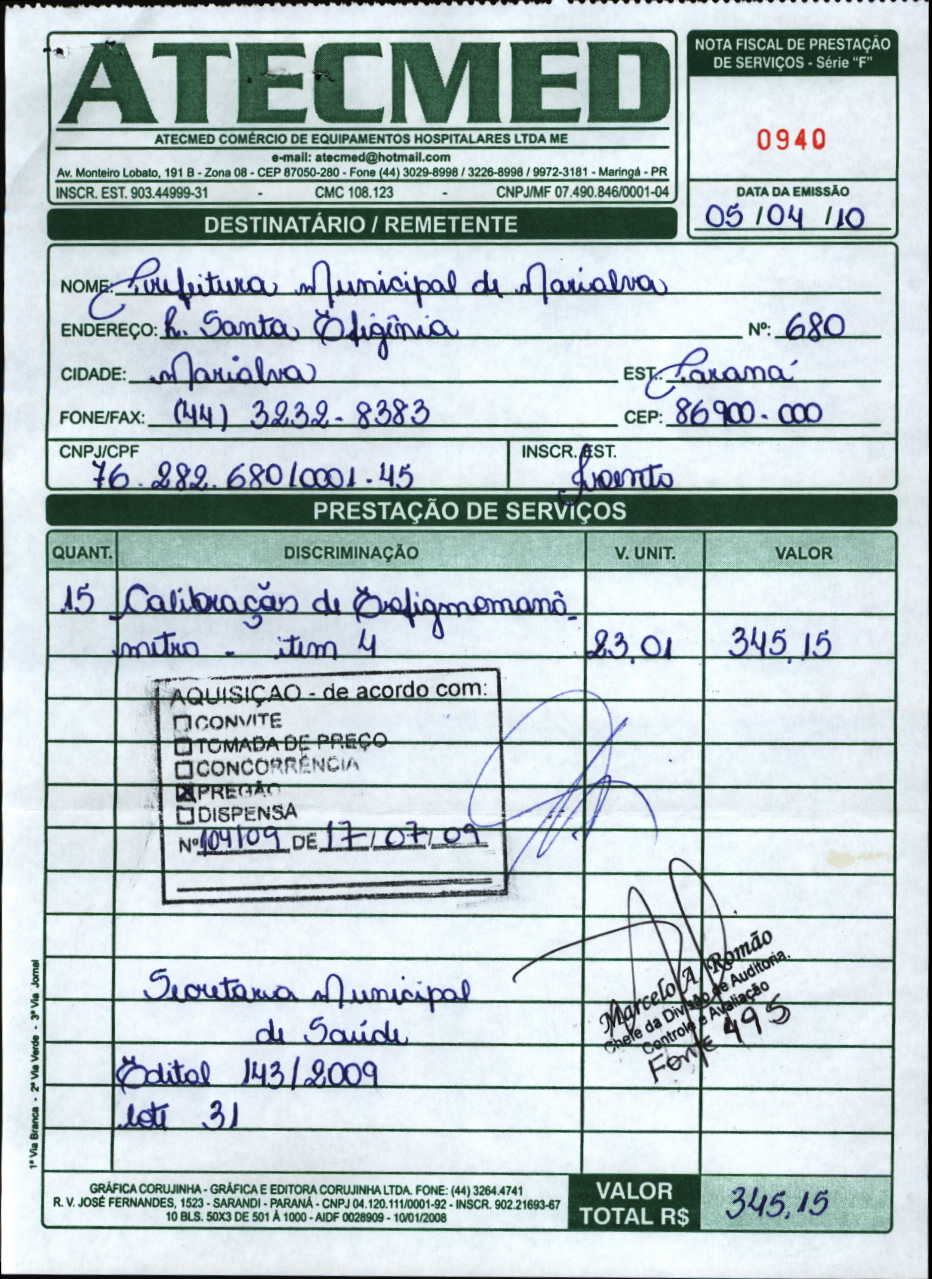 ATECMED
ATECMED COMÉRCIO DE EQUIPAMENTOS HOSPITALARES LTDA ME
e-mail: atecmed@hotmail.com
Av. Monteiro Lobato, 191 B - Zona 08 - CEP 87050-280 - Fone (44) 3029-8998 / 3226-8998 / 9972-3181 - Maringá - PR
INSCR. EST. 903.44999-31 - CMC 108.123 - CNPJ/MF 07.490.846/0001-04
NOTA FISCAL DE PRESTAÇÃO
DE SERVIÇOS - Série "F"
0940
DATA DA EMISSÃO
05 / 04 / 10
DESTINATÁRIO / REMETENTE
NOME: Prefeitura Municipal de Marialva
ENDEREÇO: R. Santa Efigênia Nº: 680
CIDADE: Marialva EST. Paraná
FONE/FAX: (44) 3232-8383 CEP: 86900-000
CNPJ/CPF INSCR. EST.
76.282.680/0001-45 Isento
PRESTAÇÃO DE SERVIÇOS
QUANT. DISCRIMINAÇÃO V. UNIT. VALOR
15 Calibração de Esfigmomanô-
metro - item 4 23,01 345,15
AQUISIÇAO - de acordo com:
CONVITE
TOMADA DE PREÇO
CONCORRÊNCIA
X PREGÃO
DISPENSA
Nº 104/09 DE 17/07/09
Marcelo A. Romão
Chefe da Divisão de Auditoria,
Controle e Avaliação
Fonte 495
Secretaria Municipal
de Saúde
Edital 143/2009
lote 31
1ª Via Branca - 2ª Via Verde - 3ª Via Jornal
GRÁFICA CORUJINHA - GRÁFICA E EDITORA CORUJINHA LTDA. FONE: (44) 3264.4741
R. V. JOSÉ FERNANDES, 1523 - SARANDI - PARANÁ - CNPJ 04.120.111/0001-92 - INSCR. 902.21693-67
10 BLS. 50X3 DE 501 Á 1000 - AIDF 0028909 - 10/01/2008
VALOR
TOTAL R$ 345,15